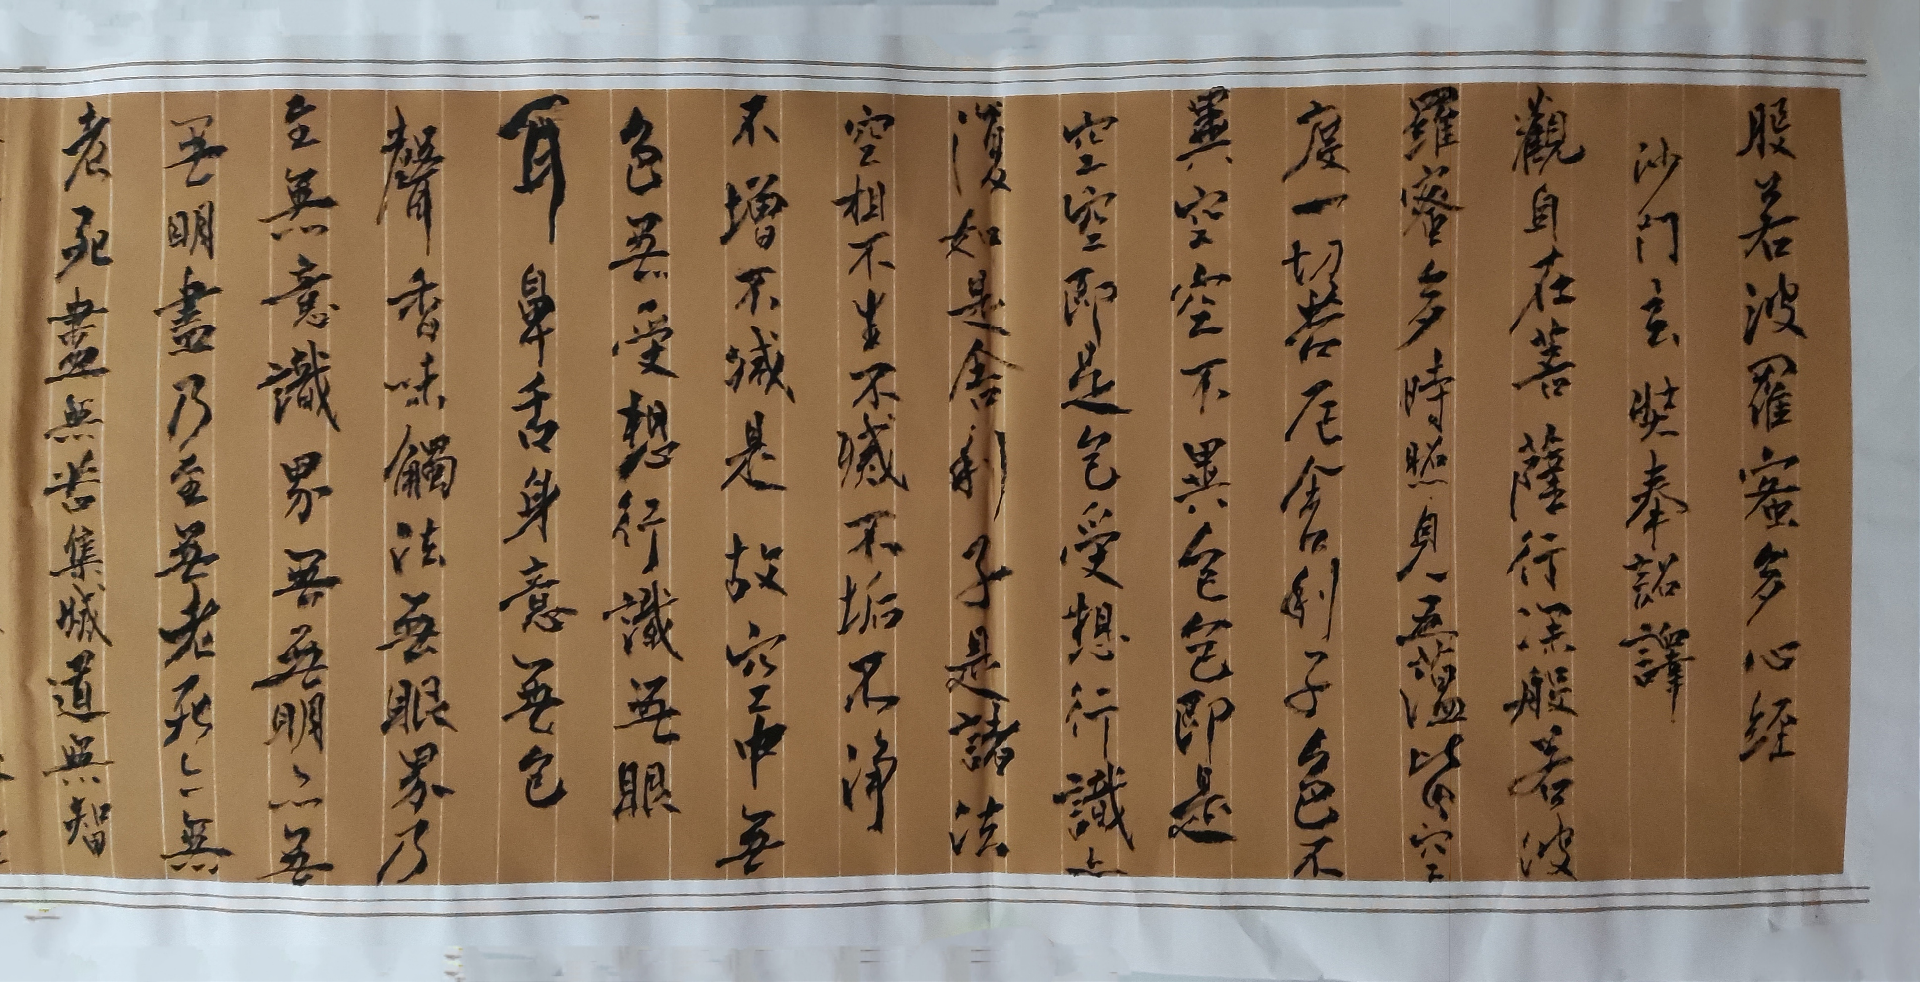 般若波羅蜜多心经
沙門玄奘奉詔譯
觀自在菩薩行深般若波
羅蜜多時照見五蘊皆空
度一切苦厄舍利子色不
異空空不異色色即是
空空即是色受想行識亦
復如是舍利子是諸法
空相不生不滅不垢不净
不增不減是故空中無
色無受想行識無眼
耳鼻舌身意無色
聲香味觸法無眼界乃
至無意識界無無明亦無
無明盡乃至無老死亦無
老死盡無苦集滅道無智